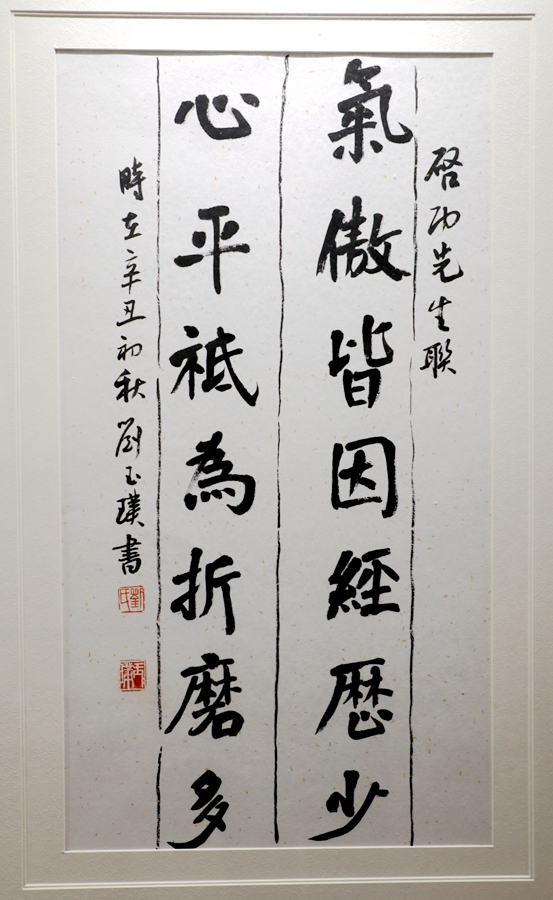 啓功先生聯
氣傲皆因經歷少
心平祗為折磨多
時在辛丑初秋劉玉璞書
劉氏
玉璞